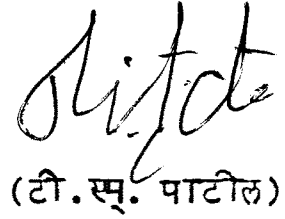 (टी.एस्. पाटील)